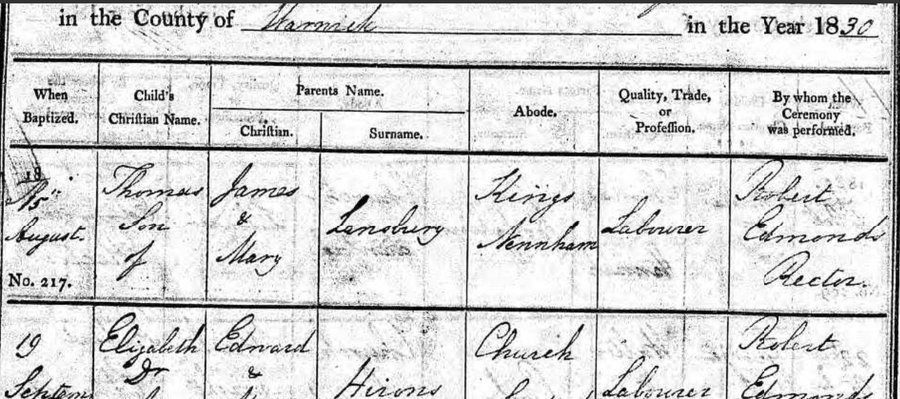 in the County of Warwick in the Year 1830
When Baptized. Child's Christian Name. Parents Name. Abode. Quality, Trade, or Profession. By whom the Ceremony was performed.
Christian. Surname.
18 Thomas James Kings Robert
Son & Lansbury Labourer Edmonds
August. of Mary Newnham Rector.
No. 217.
19 Elizabeth Edward Church Robert
Dr &
Septem Hirons Labourer Edmonds